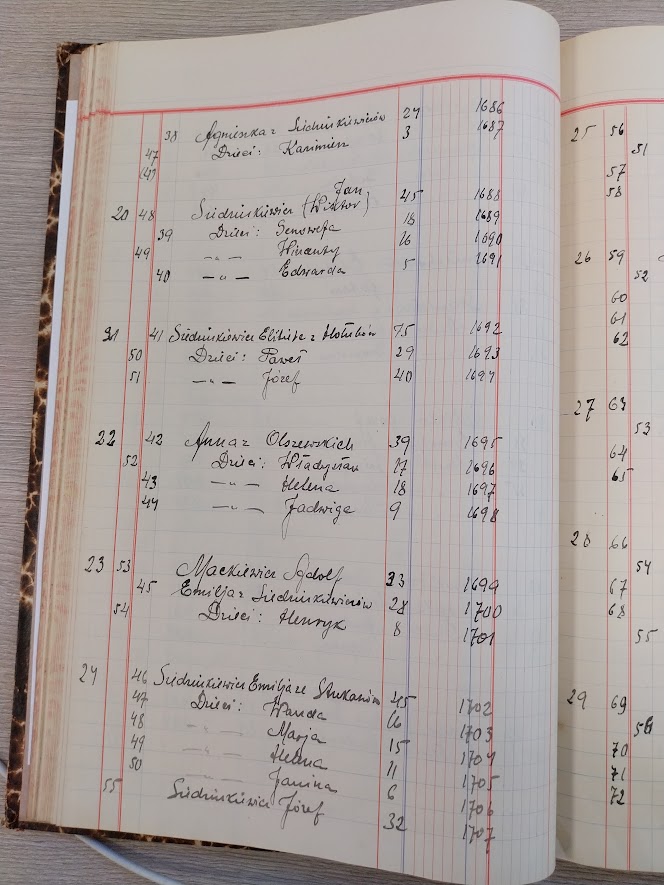 38 Agnieszka z Siedzinkiewiczów 27 1686
47 Dzieci: Kazimierz 3 1687
Jan
20 48 Siedzinkiewicz (Wiktor) 45 1688
39 Dzieci: Genowefa 18 1689
49 —"— Wincenty 16 1690
40 —"— Edwarda 5 1691
21 41 Siedzinkiewicz Elżbieta z Hołubów 75 1692
50 Dzieci: Paweł 29 1693
51 —"— Józef 40 1694
22 42 Anna z Olszewskich 39 1695
52 Dzieci: Władysław 17 1696
43 —"— Helena 18 1697
44 —"— Jadwiga 9 1698
23 53 Mackiewicz Adolf 33 1699
45 Emilja z Siedzinkiewiczów 28 1700
54 Dzieci: Henryk 8 1701
24 46 Siedzinkiewicz Emilja ze 45 1702
47 Dzieci: Wanda 16 1703
48 —"— Marja 15 1704
49 —"— Helena 11 1705
50 —"— Janina 6 1706
55 Siedzinkiewicz Józef 32 1707
25 56
51
57
58
26 59
52
60
61
62
27 63
53
64
65
28 66
54
67
68
55
29 69
56
70
71
72